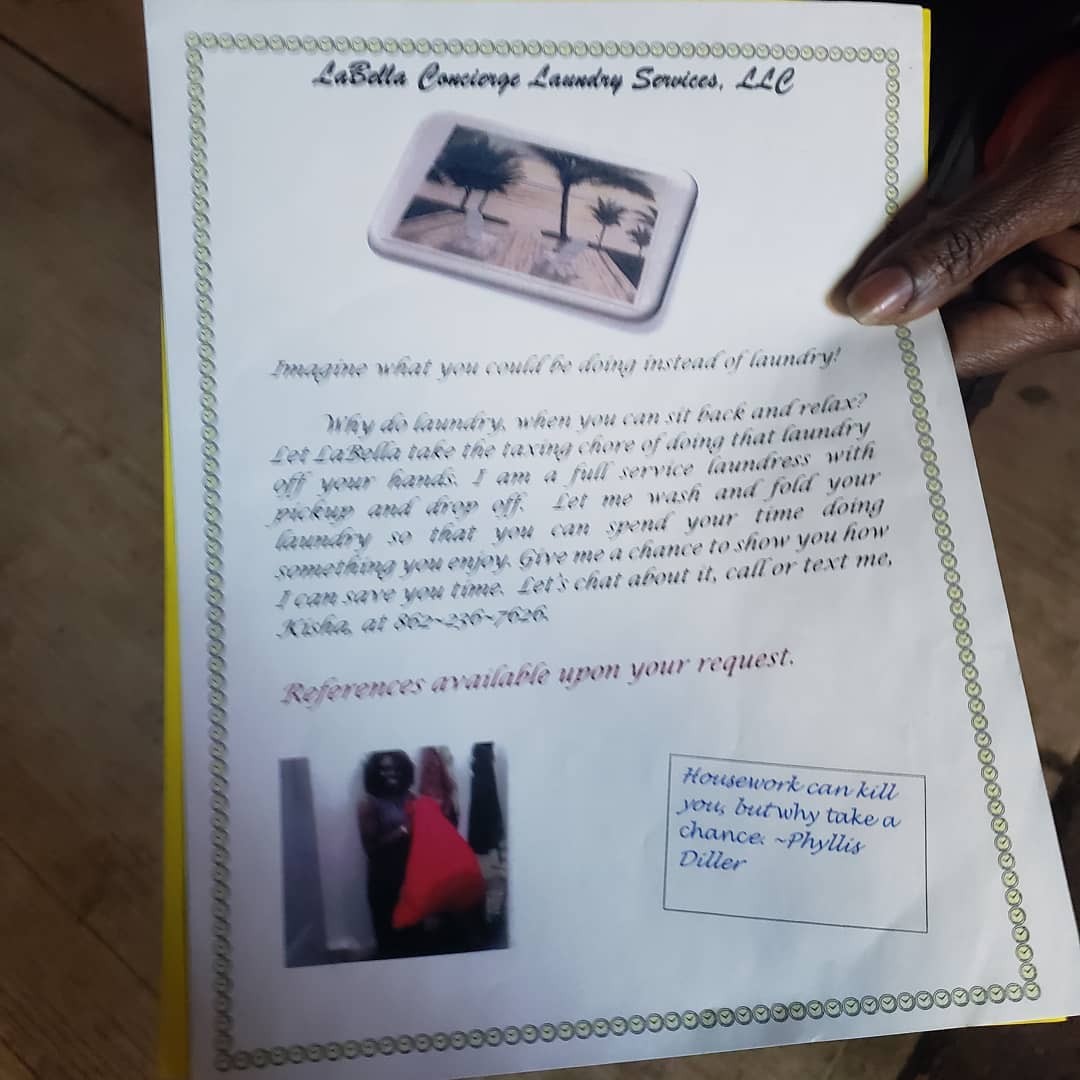 LaBella Concierge Laundry Services, LLC
Imagine what you could be doing instead of laundry!
Why do laundry, when you can sit back and relax?
Let LaBella take the taxing chore of doing that laundry
off your hands. I am a full service laundress with
pickup and drop off. Let me wash and fold your
laundry so that you can spend your time doing
something you enjoy. Give me a chance to show you how
I can save you time. Let's chat about it, call or text me,
Kisha, at 862~236~7626.
References available upon your request.
Housework can kill
you, but why take a
chance. ~Phyllis
Diller